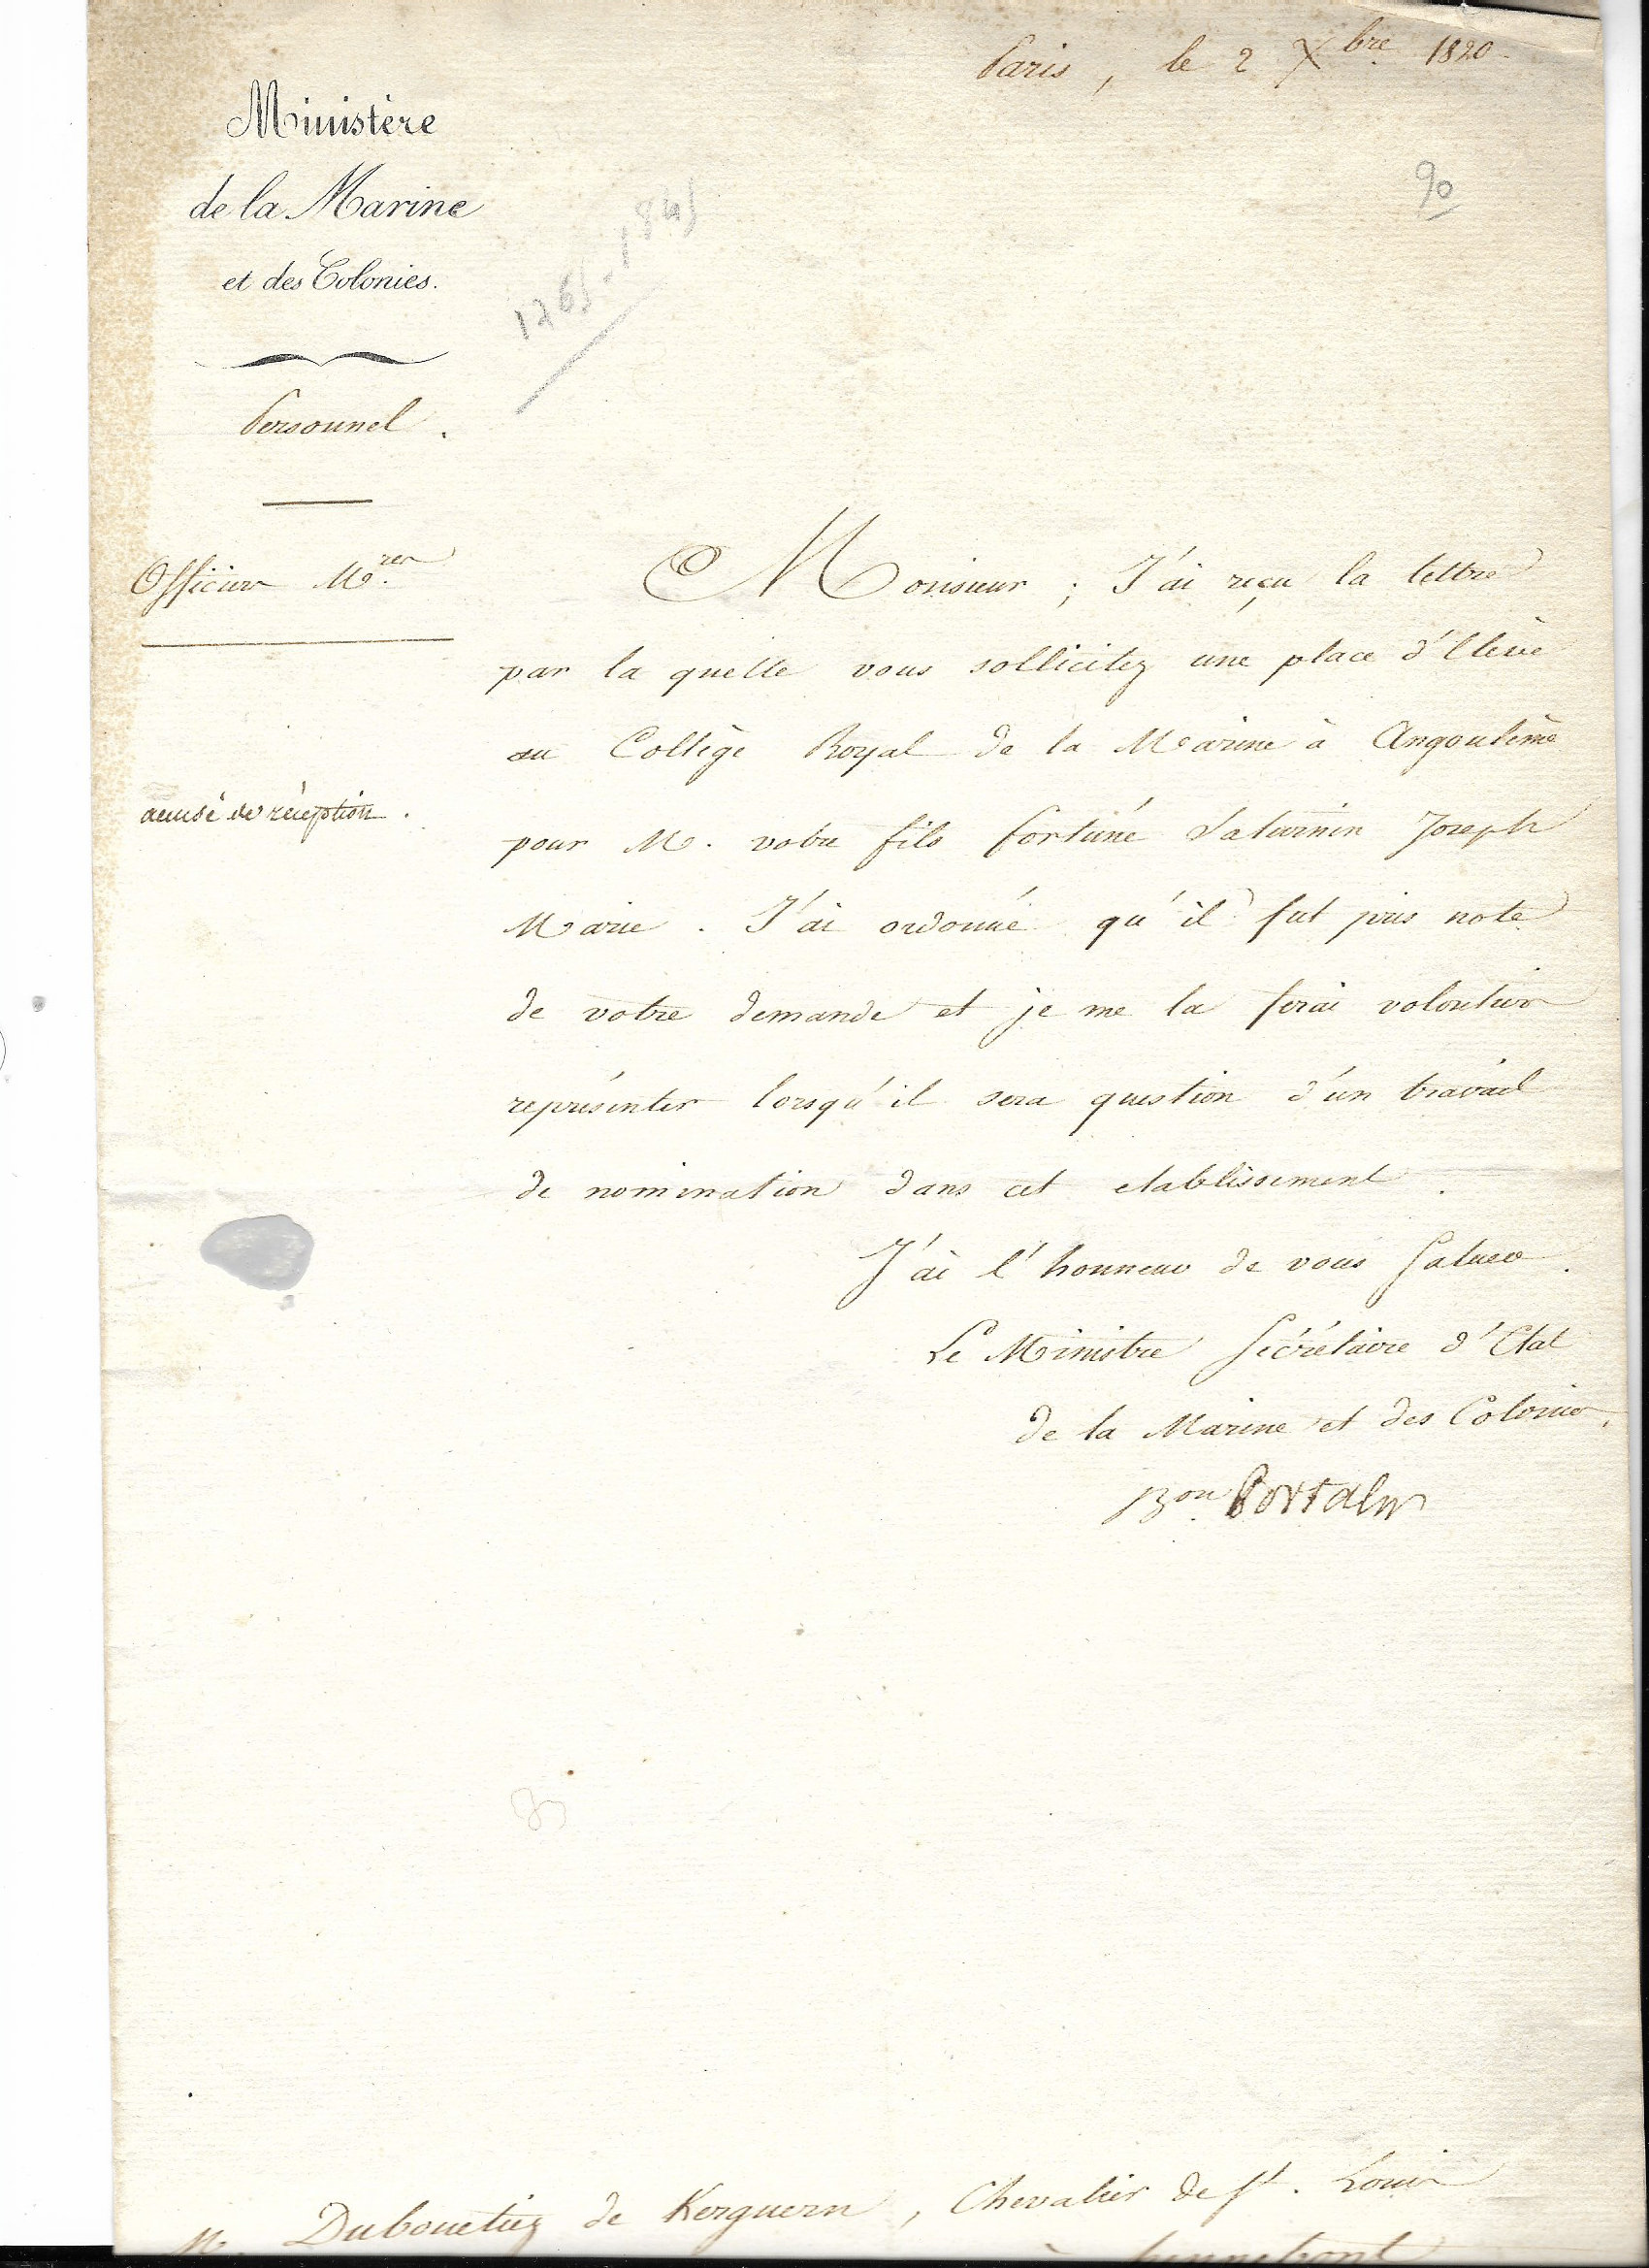 Paris, le 2 Xbre 1820
Ministère
de la Marine
et des Colonies.
90
Personnel.
Officiers Mres
accusé de réception.
Monsieur ; J'ai reçu la lettre
par la quelle vous sollicitez une place d'Elève
au Collège Royal de la Marine à Angoulême
pour M. votre fils fortuné Saturnin Joseph
Marie. J'ai ordonné qu'il fut pris note
de votre demande et je me la ferai volontiers
représenter lorsqu'il sera question d'un travail
de nomination dans cet etablissement.
J'ai l'honneur de vous Saluer.
Le Ministre Sécrétaire d'Etat
de la Marine et des Colonies,
Bon Portal
M. Dubouetiez de Kerguern, Chevalier de St. Louis
à hennebont